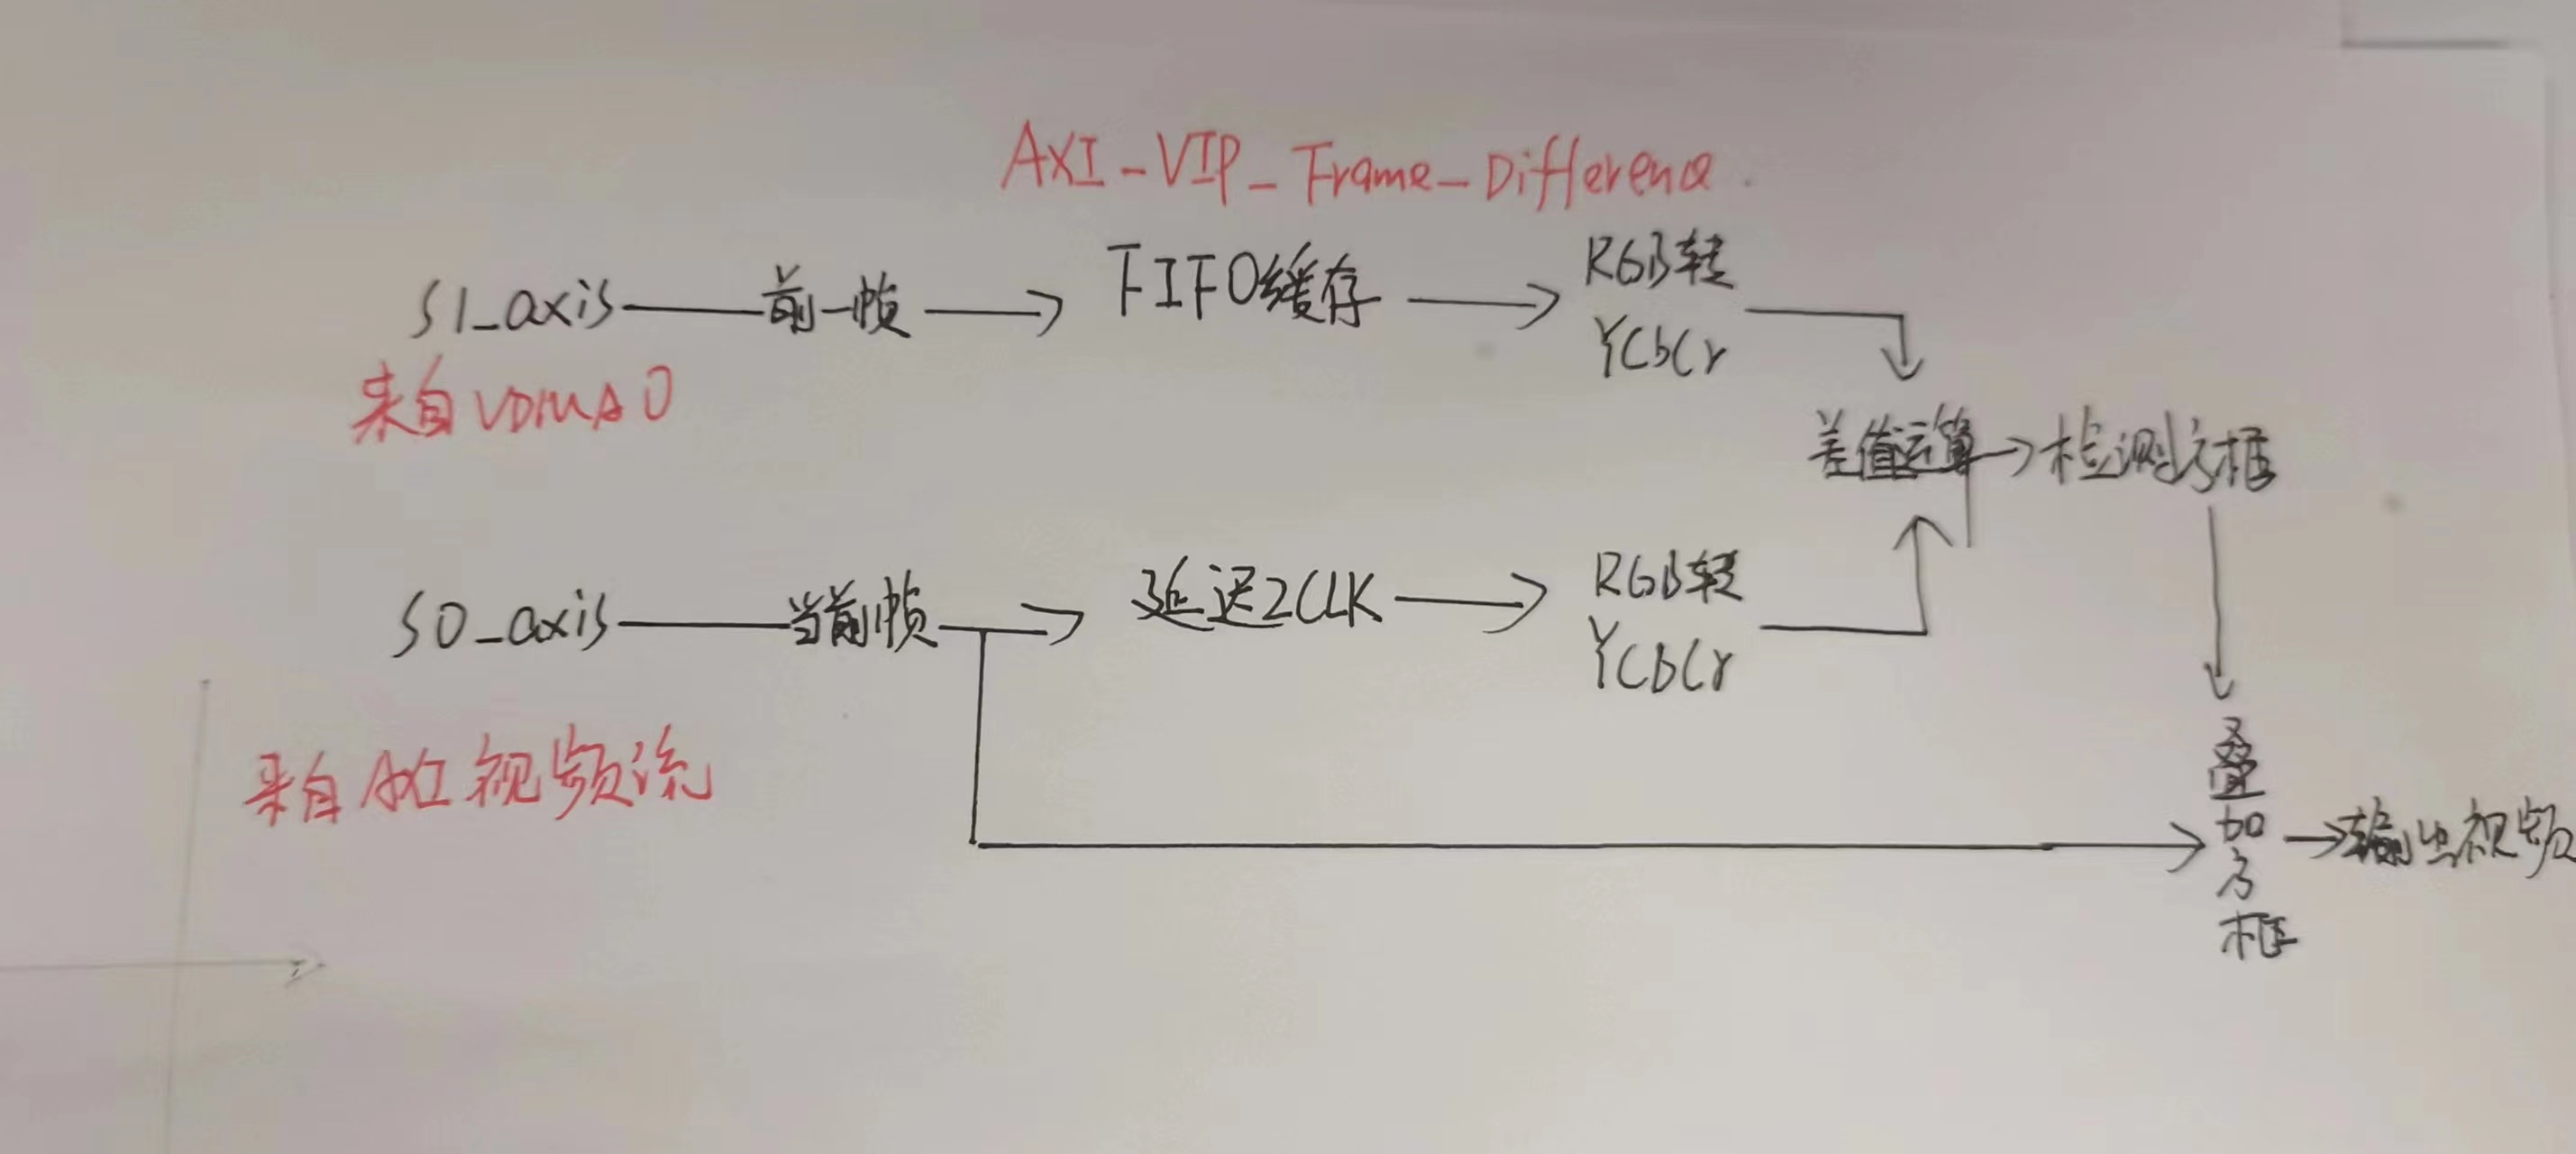 AXI-VIP_Frame-Difference
S1_axis
前一帧
FIFO缓存
RGB转
YCbCr
来自VDMA0
差值运算
检测方框
S0_axis
当前帧
延迟2CLK
RGB转
YCbCr
来自AXI视频流
叠
加
方
框
输出视频